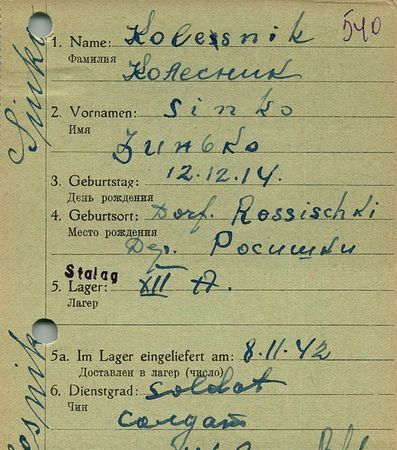 540
1. Name: Kolesnik
Фамилия Колесник
2. Vornamen: Sinko
Имя
Зинько
3. Geburtstag: 12.12.14.
День рождения
4. Geburtsort: Dorf. Rossischki
Место рождения
Дер. Росишки
Stalag
5. Lager: XII A.
Лагер
5a. Im Lager eingeliefert am: 8.11.42
Доставлен в лагер (число)
6. Dienstgrad: soldat
Чин
солдат
Sinko